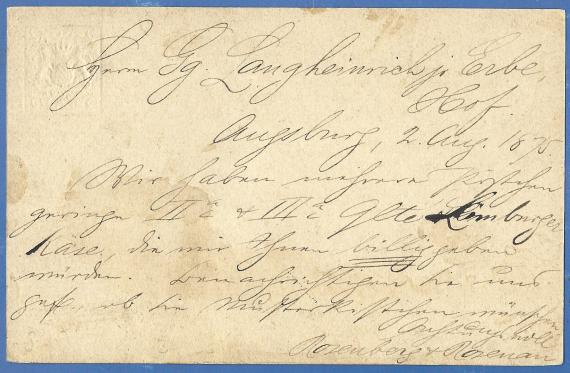 Herrn Gg. Langheinrich jr Erbe,
Hof.
Augsburg, 2. Aug. 1875.
Wir haben mehrere Kistchen
geringe IIa & IIIa Qlte Limburger
Käse, die wir Ihnen billig geben
würden. Benachrichtigen Sie uns
gefl. ob Sie Musterkistchen wünschen
Achtungsvoll
Rosenberg & Rosenau